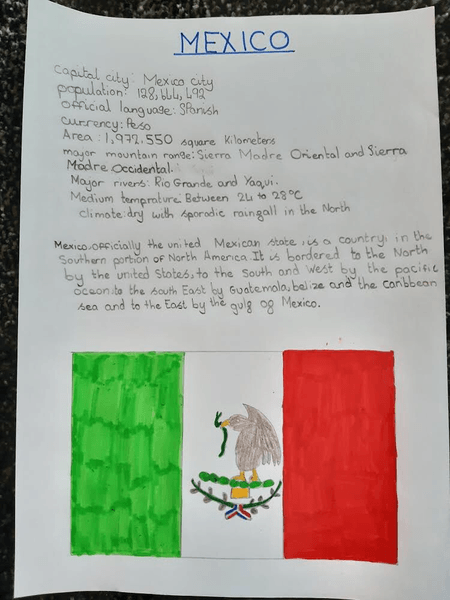 MEXICO
Capital city: Mexico city
population: 128,644,492
official language: Spanish
currency: Peso
Area: 1,972.550 square Kilometers
mayor mountain range: Sierra Madre Oriental and Sierra
Madre Occidental.
Mayor rivers: Rio Grande and Yaqui.
Medium temprature: Between 24 to 28°C
climate: dry with sporadic raingall in the North
Mexico, officially the united Mexican state, is a country, in the
Southern portion of North America. It is bordered to the North
by the united States, to the South and West by the pacific
ocean, to the south East by Guatemala, belize and the caribbean
sea and to the East by the gulg og Mexico.